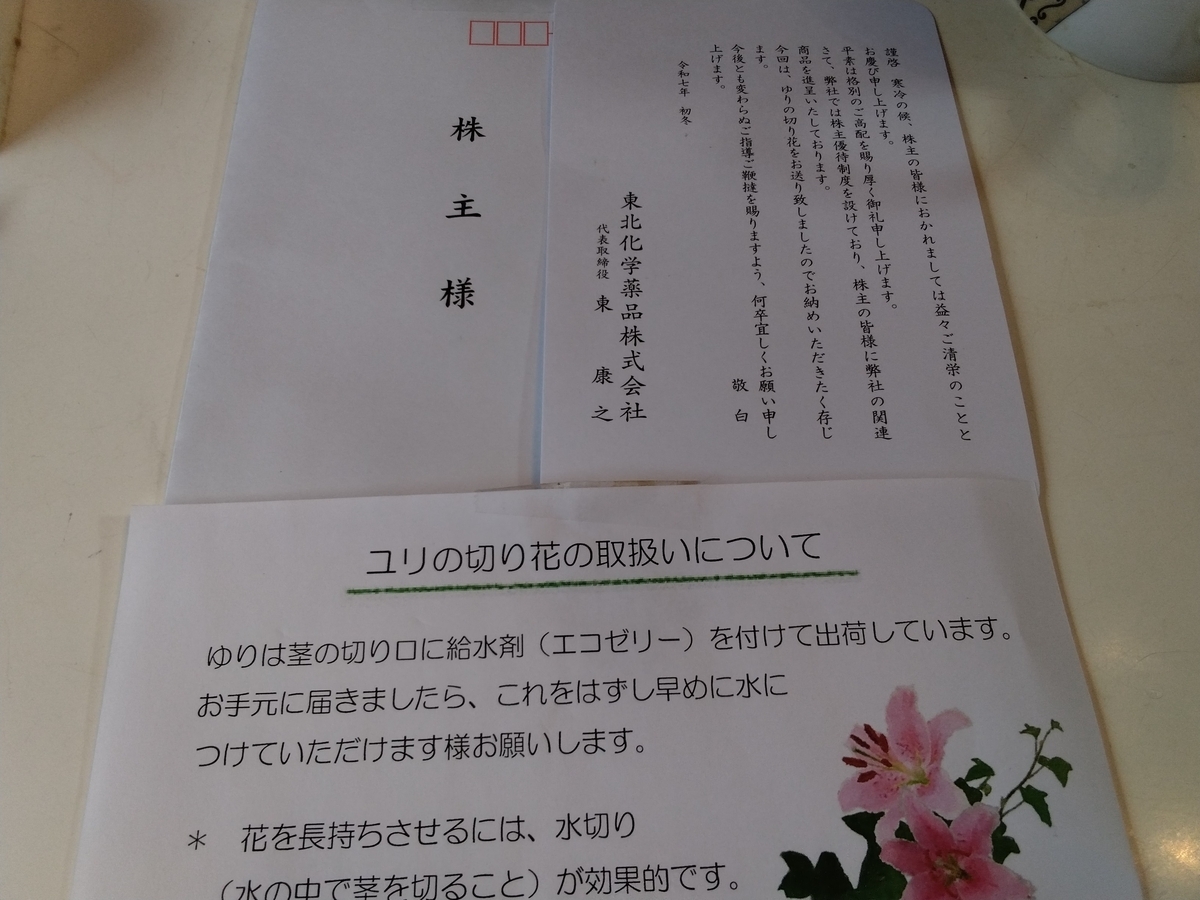 株主様
謹啓　寒冷の候、株主の皆様におかれましては益々ご清栄のことと
お慶び申し上げます。
平素は格別のご高配を賜り厚く御礼申し上げます。
さて、弊社では株主優待制度を設けており、株主の皆様に弊社の関連
商品を進呈いたしております。
今回は、ゆりの切り花をお送り致しましたのでお納めいただきたく存じ
ます。
今後とも変わらぬご指導ご鞭撻を賜りますよう、何卒宜しくお願い申し
上げます。
敬白
令和七年　初冬
東北化学薬品株式会社
代表取締役　東　康之
ユリの切り花の取扱いについて
ゆりは茎の切り口に給水剤（エコゼリー）を付けて出荷しています。
お手元に届きましたら、これをはずし早めに水に
つけていただけます様お願いします。
＊　花を長持ちさせるには、水切り
（水の中で茎を切ること）が効果的です。